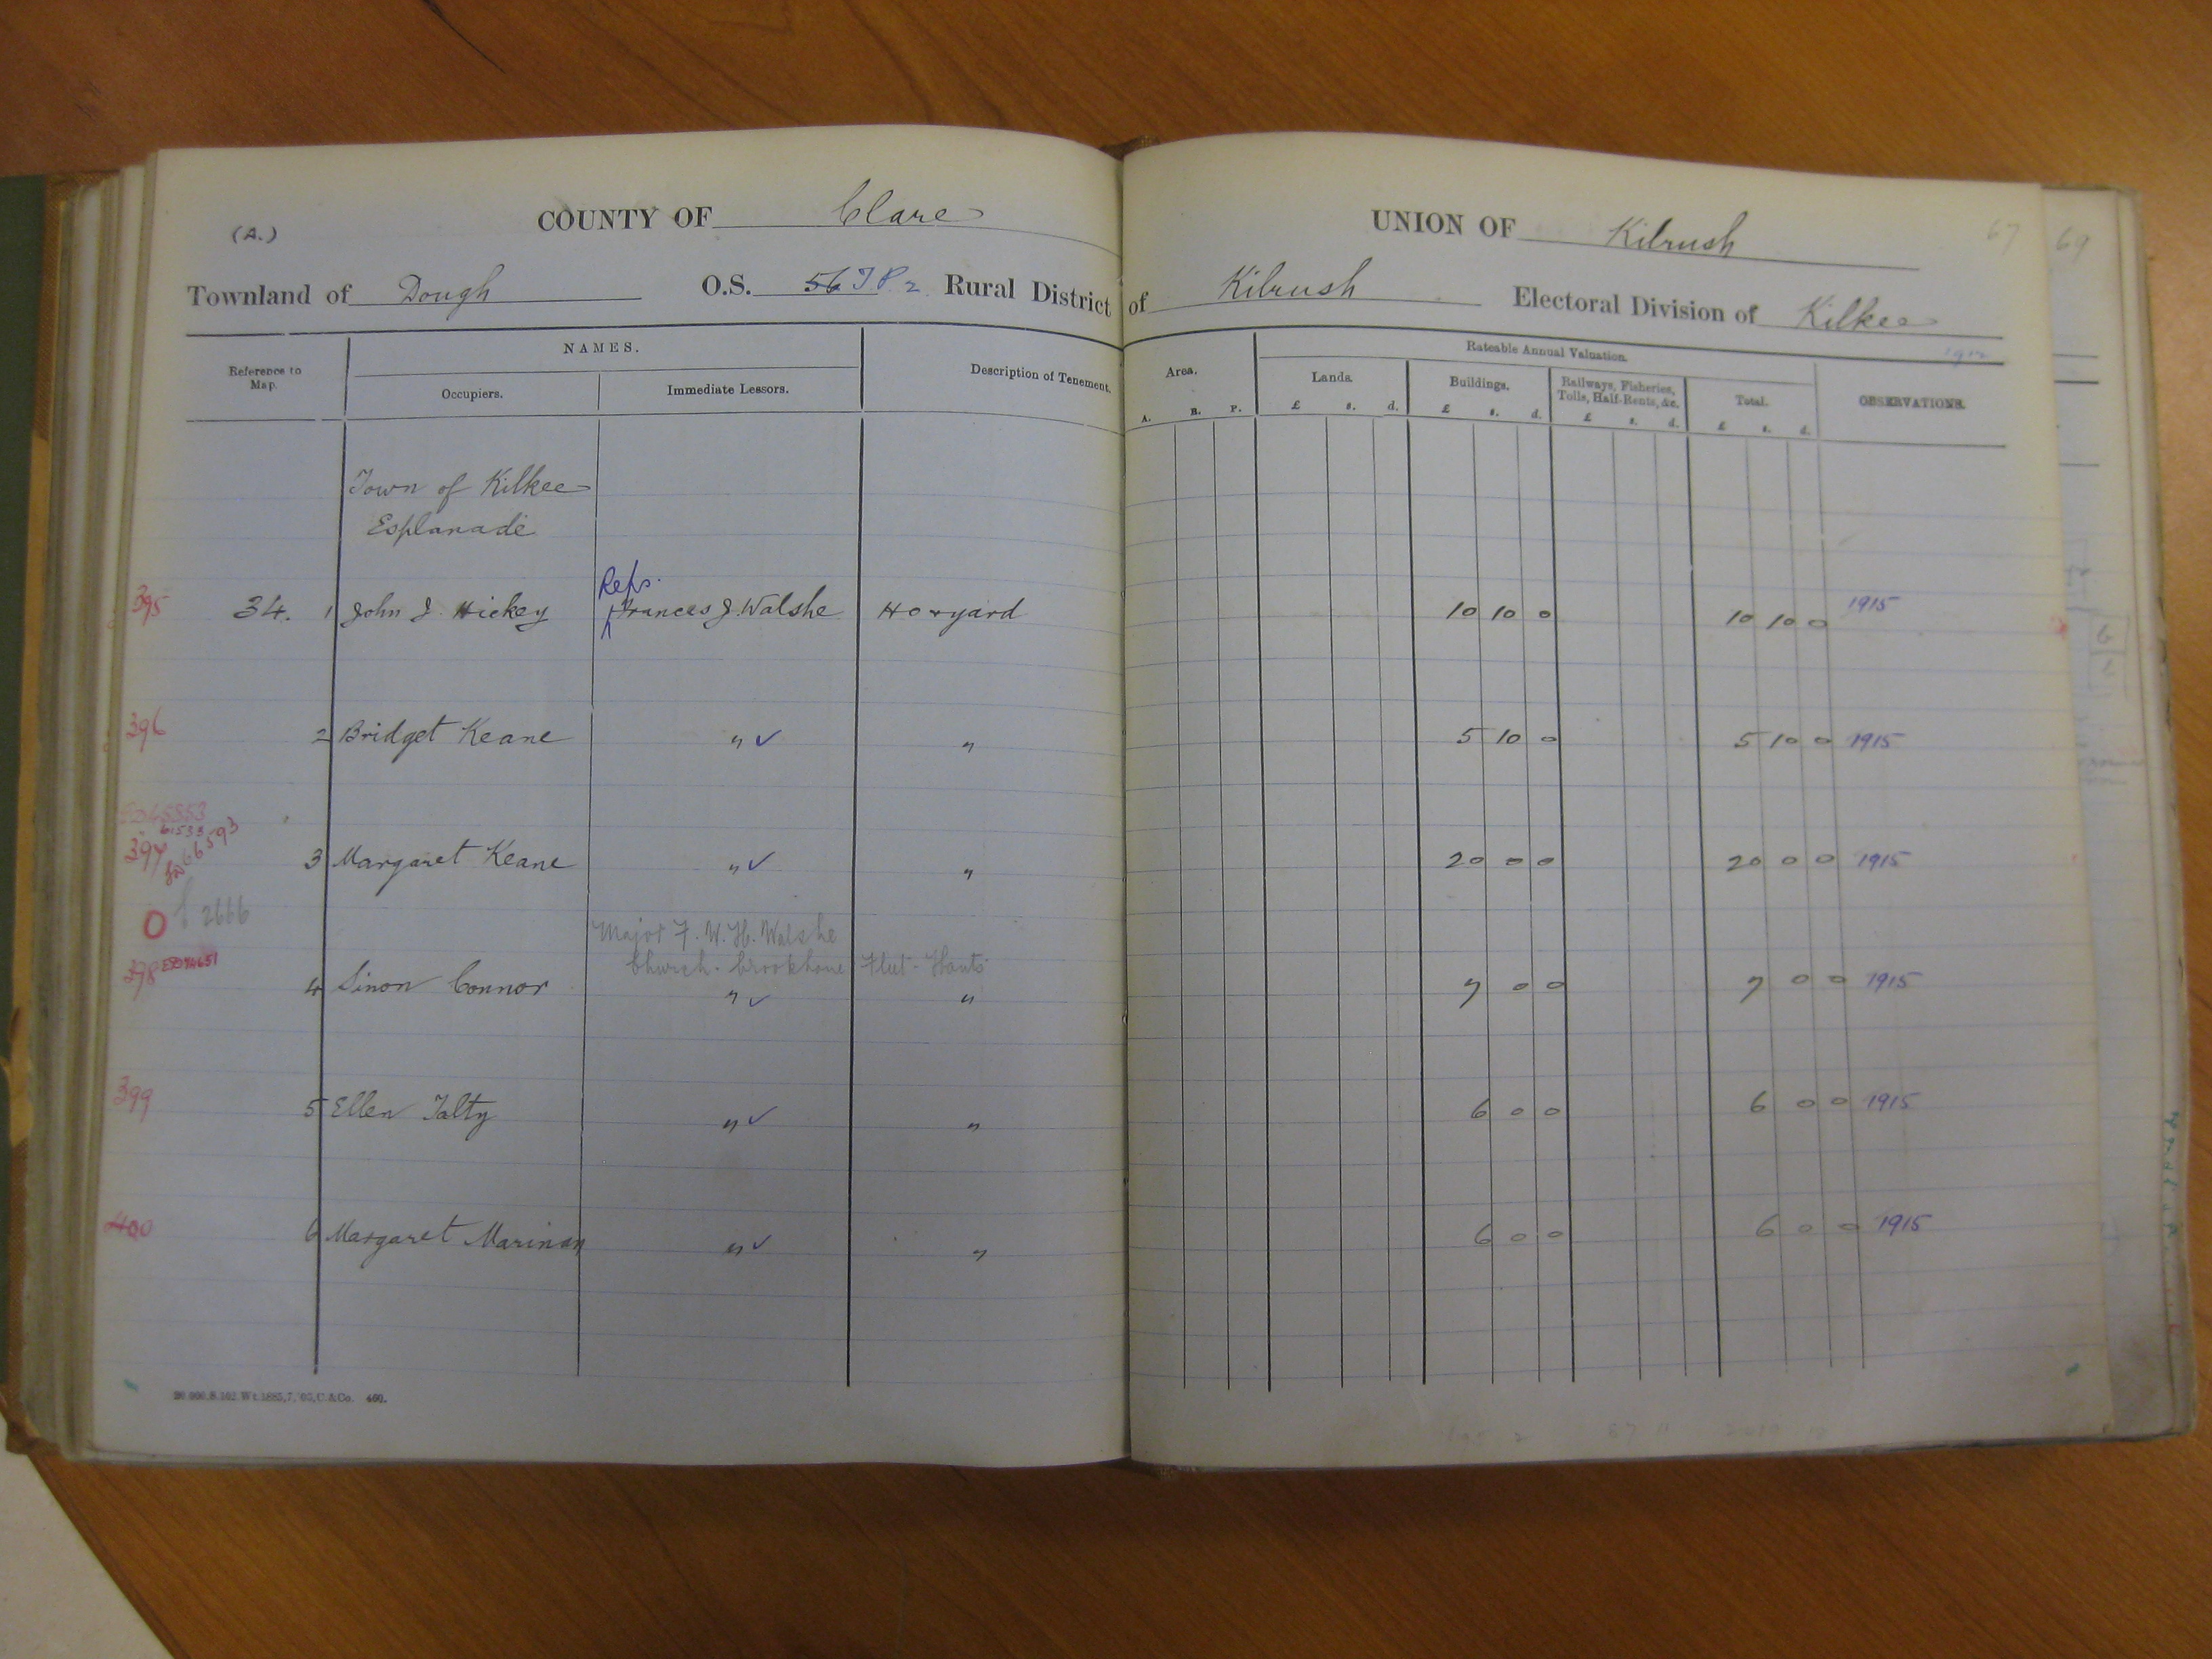 (A.) COUNTY OF Clare UNION OF Kilrush 67 69
Townland of Dough O.S. 56 T P 2 Rural District of Kilrush Electoral Division of Kilkee
Reference to Map.
NAMES.
Occupiers.
Immediate Lessors.
Description of Tenement.
Area.
A. R. P.
Rateable Annual Valuation.
Lands.
£ s. d.
Buildings.
£ s. d.
Railways, Fisheries, Tolls, Half-Rents, &c.
£ s. d.
Total.
£ s. d.
OBSERVATIONS.
Town of Kilkee
Esplanade
Reps.
395 34. 1 John J. Hickey Frances J. Walshe Ho & yard 10 10 0 10 10 0 1915
396 2 Bridget Keane " ✓ " 5 10 0 5 10 0 1915
61533
397 66593 3 Margaret Keane " ✓ " 20 0 0 20 0 0 1915
0 2666
Major F. W. H. Walshe
Church Crookham Fleet Hants
398 4 Sinon Connor " ✓ " 7 0 0 7 0 0 1915
399 5 Ellen Talty " ✓ " 6 0 0 6 0 0 1915
400 6 Margaret Marinan " ✓ " 6 0 0 6 0 0 1915